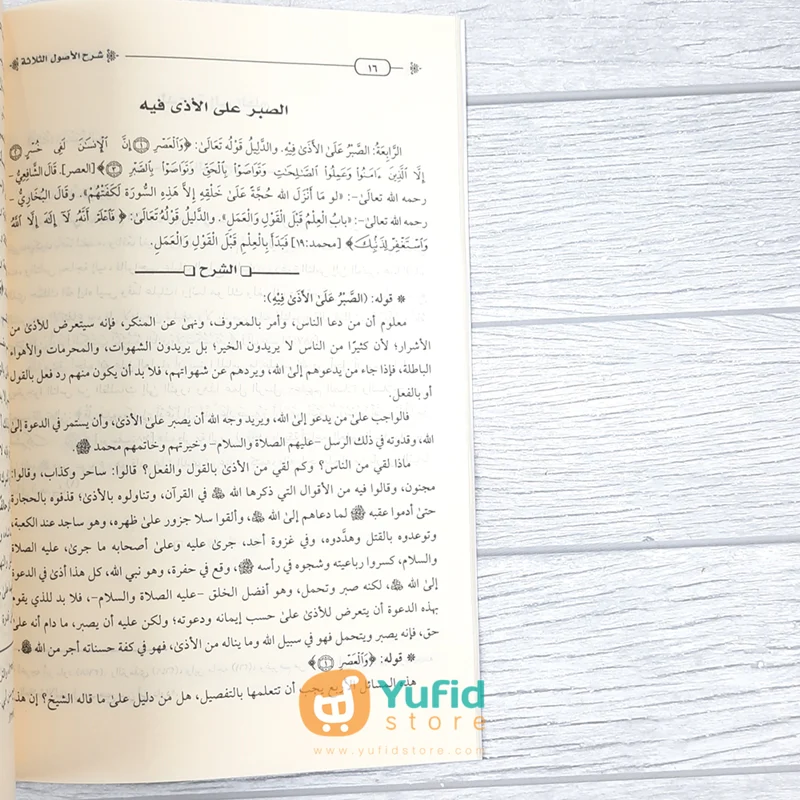 شرح الأصول الثلاثة
١٦
الصبر على الأذى فيه
الرَّابِعَةُ: الصَّبْرُ عَلَىٰ الأَذَىٰ فِيْهِ. والدَّلِيلُ قَوْلُهُ تَعَالَىٰ: ﴿وَٱلْعَصْرِ ۝١ إِنَّ ٱلْإِنسَٰنَ لَفِى خُسْرٍ ۝٢
إِلَّا ٱلَّذِينَ ءَامَنُوا۟ وَعَمِلُوا۟ ٱلصَّٰلِحَٰتِ وَتَوَاصَوْا۟ بِٱلْحَقِّ وَتَوَاصَوْا۟ بِٱلصَّبْرِ ۝٣﴾ [العصر]. قَالَ الشَّافِعِيُّ -
رحمه الله تعالىٰ-: «لو مَا أَنْزَلَ الله حُجَّةً عَلَىٰ خَلْقِهِ إِلاَّ هَذِهِ السُّورَة لَكَفَتْهُمْ». وقَالَ البُخَارِيُّ -
رحمه الله تعالىٰ-: «بابُ العِلْمُ قَبْلَ القَوْلِ وَالعَمَلِ». والدَّلِيلُ قَوْلُهُ تَعَالَىٰ: ﴿ فَٱعْلَمْ أَنَّهُۥ لَآ إِلَٰهَ إِلَّا ٱللَّهُ
وَٱسْتَغْفِرْ لِذَنۢبِكَ﴾ [محمد:١٩] فَبَدَأَ بِالْعِلْمِ قَبْلَ القَوْلِ وَالعَمَلِ.
الشرح
* قوله: (الصَّبْرُ عَلَىٰ الأَذَىٰ فِيْهِ):
معلوم أن من دعا الناس، وأمر بالمعروف، ونهىٰ عن المنكر، فإنه سيتعرض للأذىٰ من
الأشرار؛ لأن كثيرًا من الناس لا يريدون الخير؛ بل يريدون الشهوات، والمحرمات والأهواء
الباطلة، فإذا جاء من يدعوهم إلىٰ الله، ويردهم عن شهواتهم، فلا بد أن يكون منهم رد فعل بالقول
أو بالفعل.
فالواجب علىٰ من يدعو إلىٰ الله، ويريد وجه الله أن يصبر علىٰ الأذىٰ، وأن يستمر في الدعوة إلىٰ
الله، وقدوته في ذلك الرسل -عليهم الصلاة والسلام- وخيرتهم وخاتمهم محمد ﷺ.
ماذا لقي من الناس؟ وكم لقي من الأذىٰ بالقول والفعل؟ قالوا: ساحر وكذاب، وقالوا:
مجنون، وقالوا فيه من الأقوال التي ذكرها الله في القرآن، وتناولوه بالأذىٰ؛ قذفوه بالحجارة
حتىٰ أدموا عقبه ﷺ لما دعاهم إلىٰ الله، وألقوا سلا جزور علىٰ ظهره، وهو ساجد عند الكعبة،
وتوعدوه بالقتل وهدَّدوه، وفي غزوة أحد، جرىٰ عليه وعلىٰ أصحابه ما جرىٰ، عليه الصلاة
والسلام، كسروا رباعيته وشجوه في رأسه ﷺ، وقع في حفرة، وهو نبي الله، كل هذا أذىٰ في الدعوة
إلىٰ الله، لكنه صبر وتحمل، وهو أفضل الخلق -عليه الصلاة والسلام-، فلا بد للذي يقوم
بهذه الدعوة أن يتعرض للأذىٰ علىٰ حسب إيمانه ودعوته؛ ولكن عليه أن يصبر، ما دام أنه علىٰ
حق، فإنه يصبر ويتحمل فهو في سبيل الله وما يناله من الأذىٰ، فهو في كفة حسناته أجر من الله.
* قوله: ﴿وَٱلْعَصْرِ ۝١﴾:
هذه المسائل الأربع يجب أن تتعلمها بالتفصيل، هل من دليل علىٰ ما قاله الشيخ؟ إن هذه
Yufid
store
www.yufidstore.com